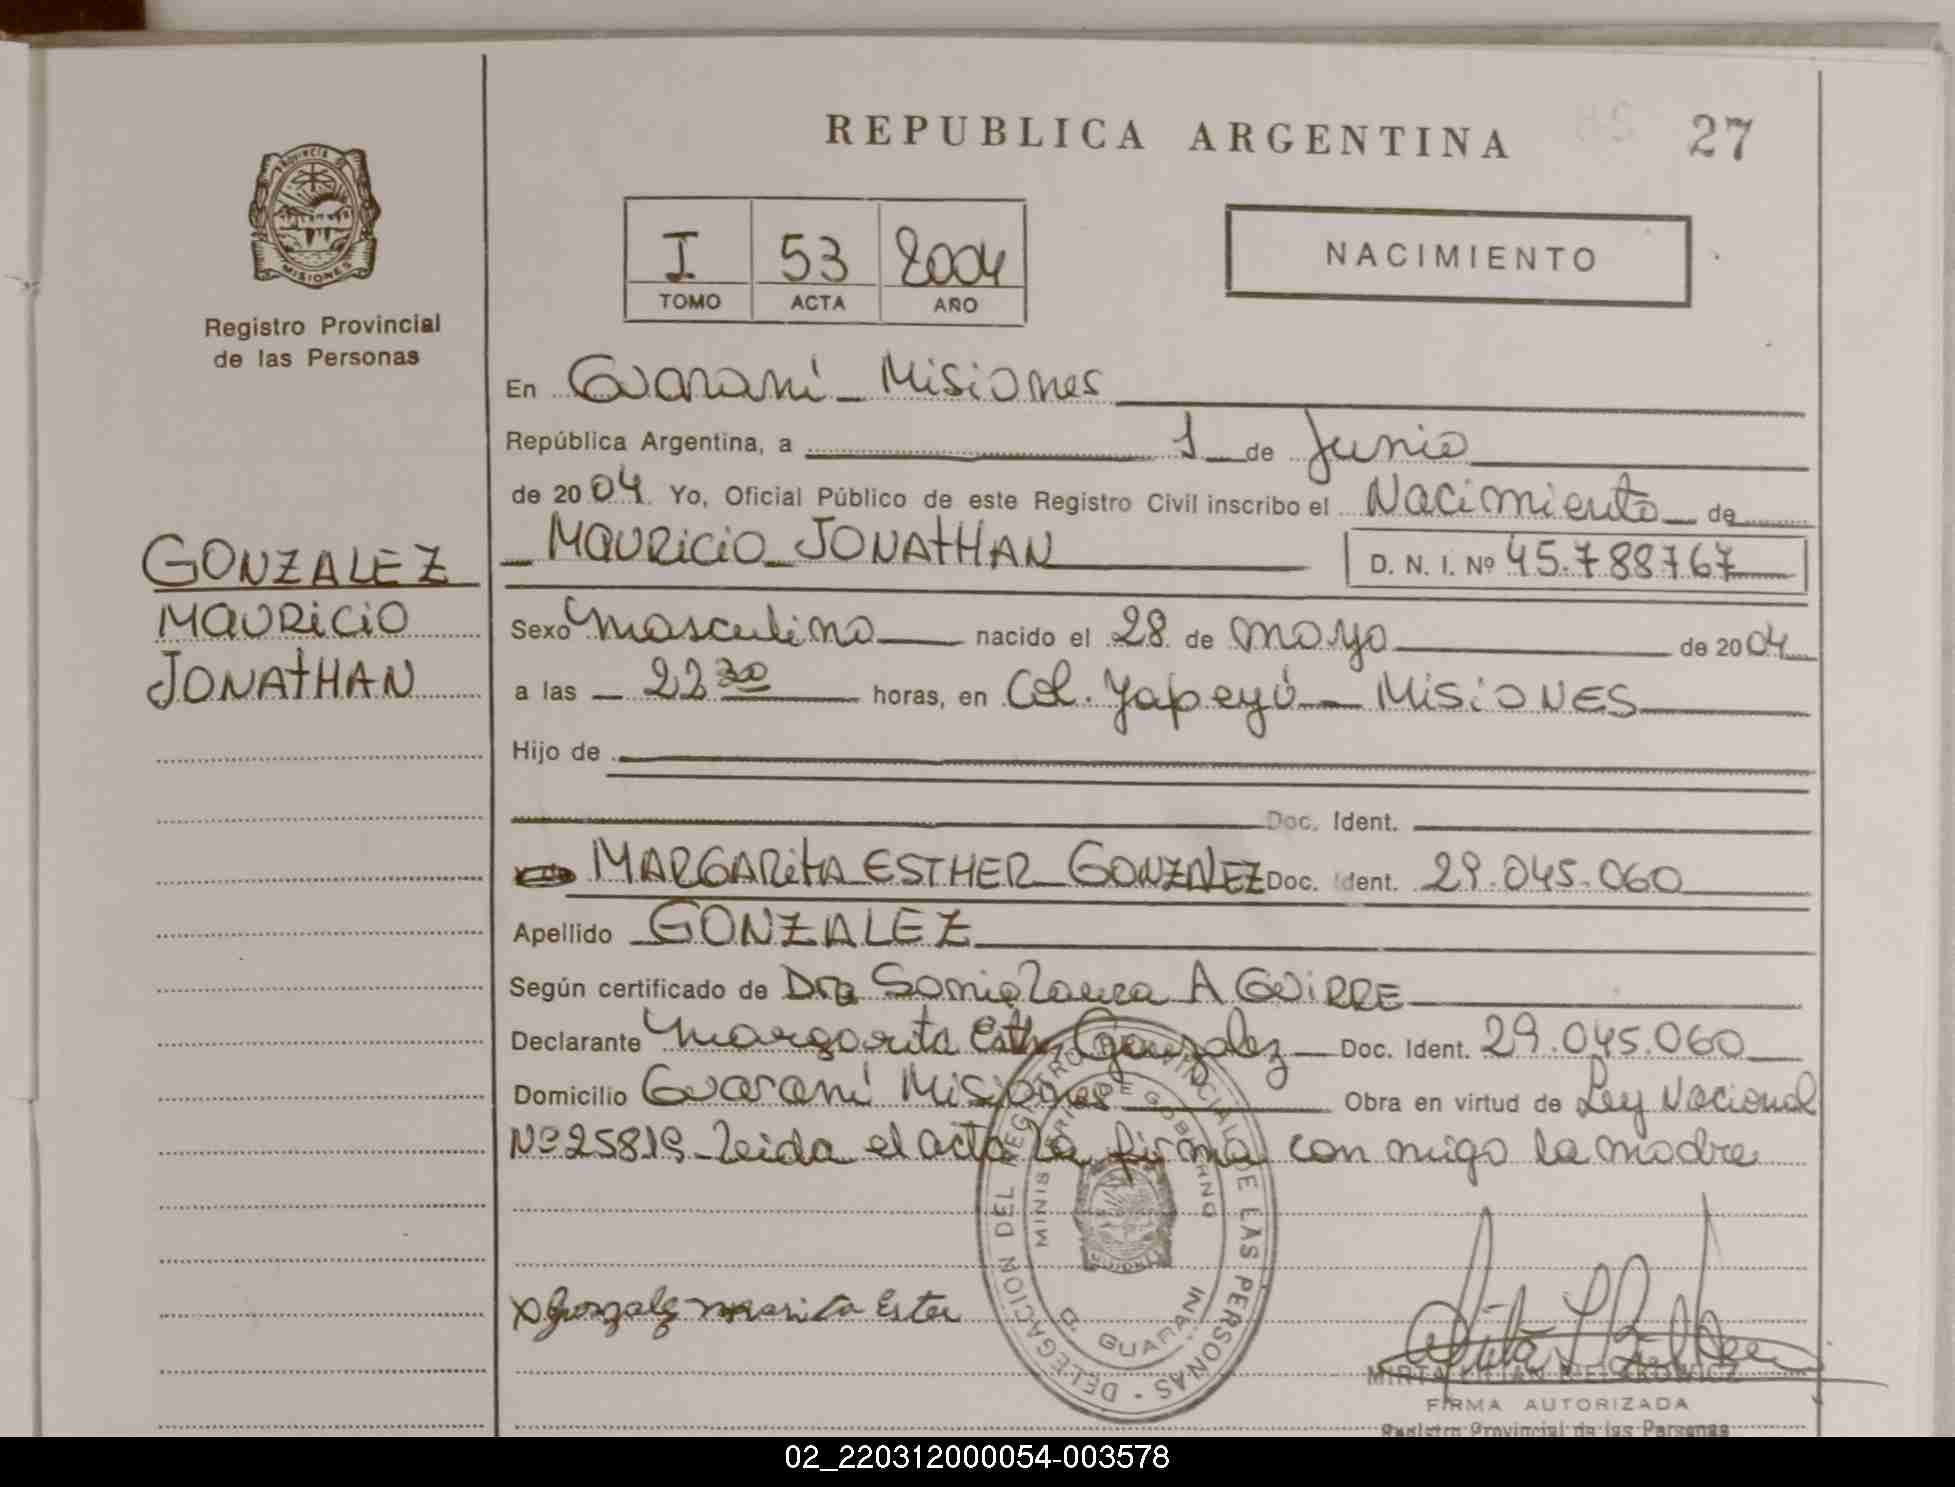 REPUBLICA ARGENTINA
27
PROVINCIA DE
MISIONES
Registro Provincial
de las Personas
I 53 2004
TOMO ACTA AÑO
NACIMIENTO
En Guaraní - Misiones
República Argentina, a 1 de Junio
de 2004 Yo, Oficial Público de este Registro Civil inscribo el Nacimiento de
MAURICIO JONATHAN D. N. I. Nº 45.788767
GONZALEZ
MAURICIO
JONATHAN
Sexo Masculino nacido el 28 de mayo de 2004
a las 22 30 horas, en Col. Yapeyú - MISIONES
Hijo de
Doc. Ident.
MARGARITA ESTHER GONZALEZ Doc. Ident. 29.045.060
Apellido GONZALEZ
Según certificado de Dra Sonia Laura AGUIRRE
Declarante Margarita Esther Gonzalez Doc. Ident. 29.045.060
Domicilio Guaraní Misiones Obra en virtud de Ley Nacional
Nº 25819 - Leida el acta la firma con migo la madre
DELEGACION DEL REGISTRO PROVINCIAL DE LAS PERSONAS
MINISTERIO DE GOBIERNO
D. GUARANI
X Gonzalez Ester
MIRTA LILIAN
FIRMA AUTORIZADA
Registro Provincial de las Personas
02_220312000054-003578